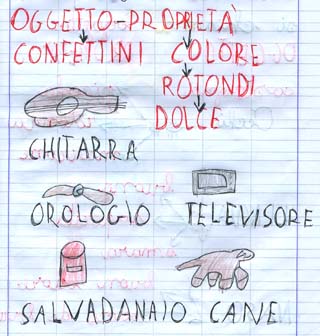 OGGETTO-PROPRIETÀ
CONFETTINI COLORE
ROTONDI
DOLCE
CHITARRA
OROLOGIO TELEVISORE
SALVADANAIO CANE